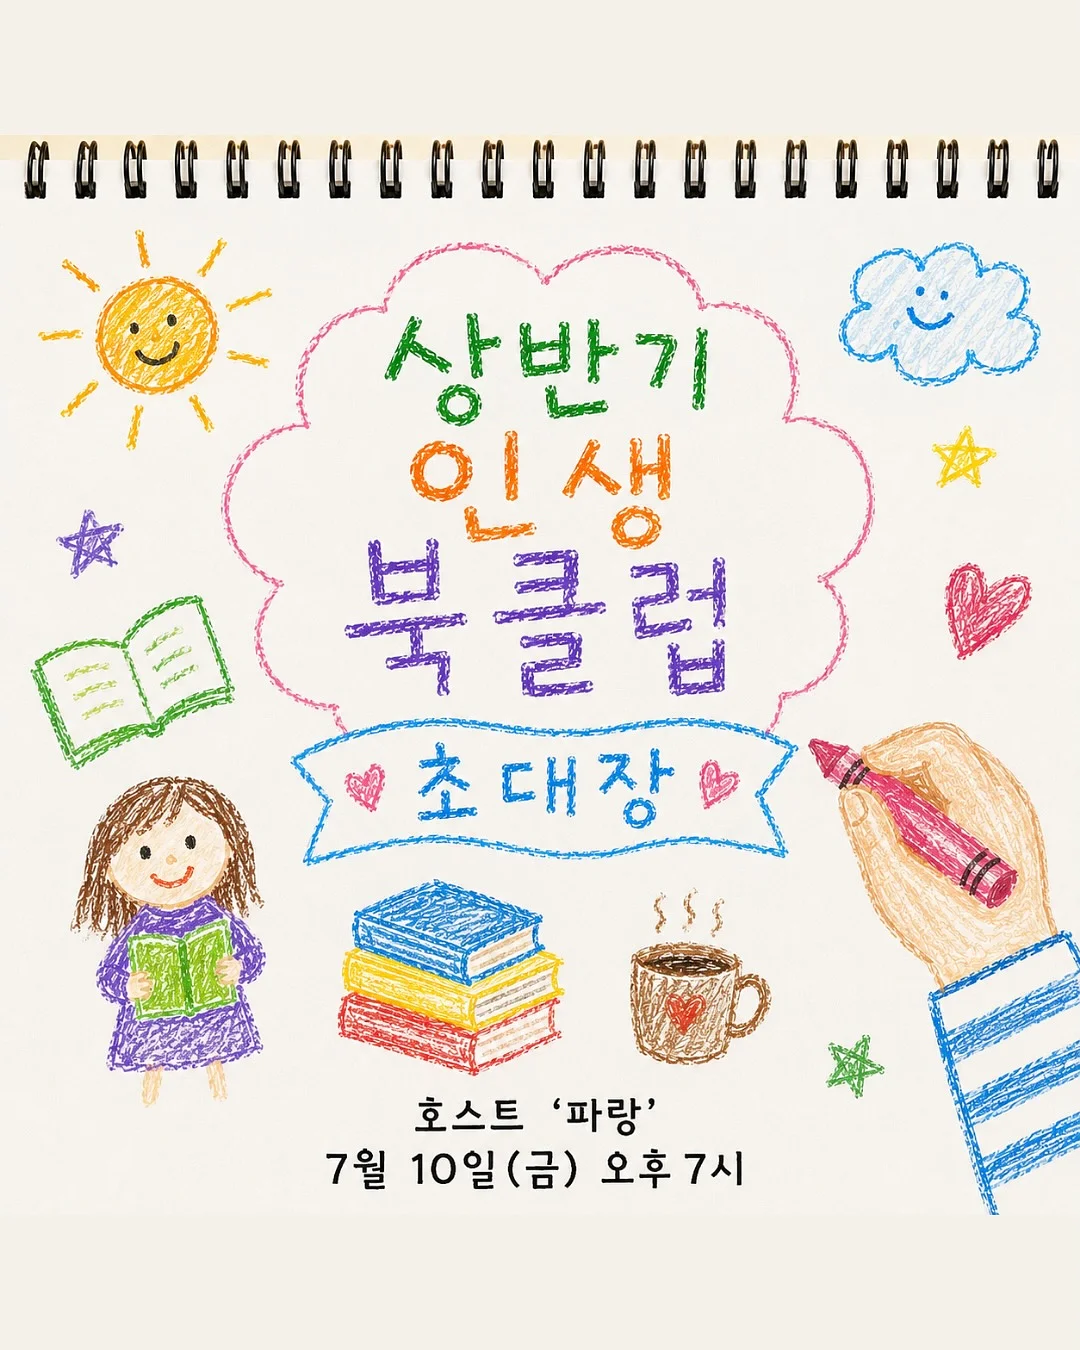 상반기
인생
북클럽
초대장
호스트 ‘파랑’
7월 10일(금) 오후 7시